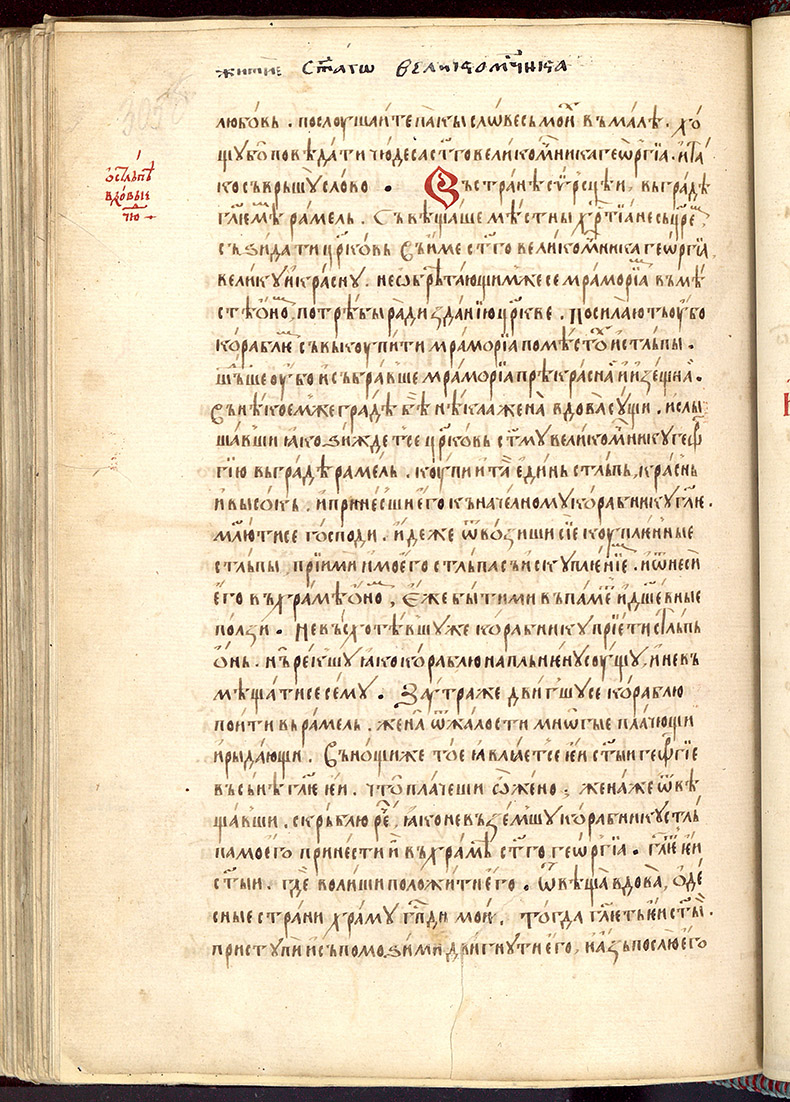 житіе ст҃аго великомч҃ника
любовь . послоушаите пакы словесь мои҆ въмалѣ . хо
щꙋ бо повѣдати чюдеса ст҃го великомч҃ника геѡргїа . и҆ та
ко съврьшꙋ слово . Въ странѣ сѵ́рсцѣи , въ градѣ
гл҃емѣ рамель . Съвѣщаше мѣстны хрⷭ҇тїане съ
съзидати цр҃ковь въ и҆ме ст҃го великомч҃ника геѡргїа
великꙋ и҆ краснꙋ . не ѡ҆брѣтающим же се мраморїа въ мѣ
стѣ ѡ҆но , потрѣбы ради зданїю цр҃кве . Посилаютъ оу҆бо
корабль съвькоупити мраморїа по мѣстѡ и҆ стльпы .
шьⷣше оу҆бо и҆ събравше мраморїа прѣкраснаа и҆ и҆зещнаа .
Въ нѣкоем же градѣ бѣ нѣкаа жена вдова сꙋщи . и҆ слы
шавши ꙗ҆ко зиждетсе цр҃ковь ст҃мꙋ великомч҃никꙋ геѡр
гїю въ градѣ рамель . коупи и҆ та едінь стльпь , краснь
и҆ высокь . и҆ принесши е҆го къ началномꙋ корабникꙋ гл҃ю .
млютисе господи . и҆деже ѿвозиши сїе коупленные
стльпы , прїими и҆ моего стльпа съ и҆скꙋпленїе . и҆ ѿнеси
е҆го въ храмь ѡ҆но , Еже быти ми въ памⷮе и҆ дш҃евные
ползи . Не въсхотѣвшꙋ же корабникꙋ прїети стльпь
ѡ҆нь . нь рекшꙋ ꙗ҆ко кораблю напльненꙋ соущꙋ , и҆ не въ
мѣщатисе семꙋ . Заꙋтра же двигшꙋсе кораблю
поити въ рамель . жена ѿ жалости мнѡгые плачющи
и҆ рыдающи . Въ нощи же тое ꙗ҆влꙗетсе і҆еи ст҃ыи геѡргїе
въ сьнѣ гл҃е і҆еи . что плачеши ѡ҆ жено ; жена же ѿвѣ
щавши . скрьблю рⷱ҇е , ꙗ҆ко не вьземшꙋ корабникꙋ стль
па моего принести и҆ въ храмь ст҃го геѡргїа . гл҃е і҆еи
ст҃ыи . где волиши положити е҆го . ѿвѣща вдова , ѡ҆де
сные страни храмꙋ гпⷭ҇ди мои . тогда гл҃етъ і҆еи ст҃ы .
приступи и҆ съпомози ми двигнꙋти е҆го , и҆ азъ послю е҆го